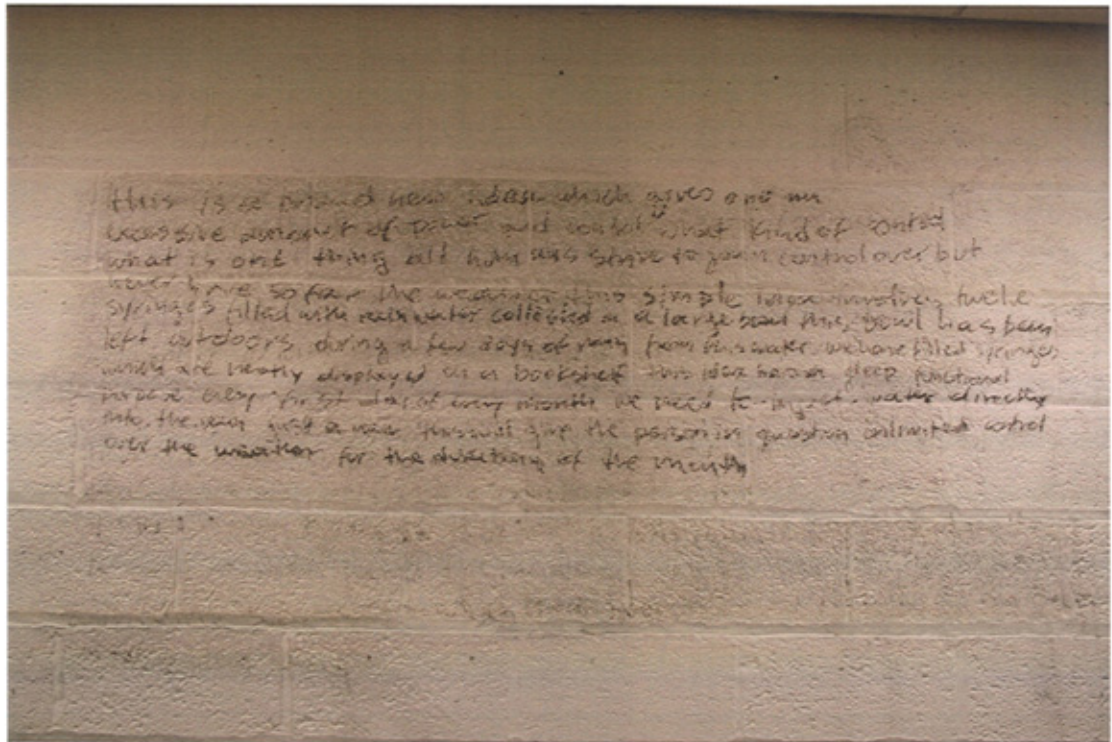 this is a brand new idea which gives one an
excessive amount of power and control what kind of control
what is one thing all humans strive to gain control over but
never have so far the weather this simple idea involves twelve
syringes filled with rain water collected in a large bowl this bowl has been
left outdoors during a few days of rain from this water we have filled syringes
which are neatly displayed on a bookshelf this idea has a deep functional
every first day of every month we need to inject water directly
into the vein just a this will give the person in question unlimited control
over the weather for the duration of the month